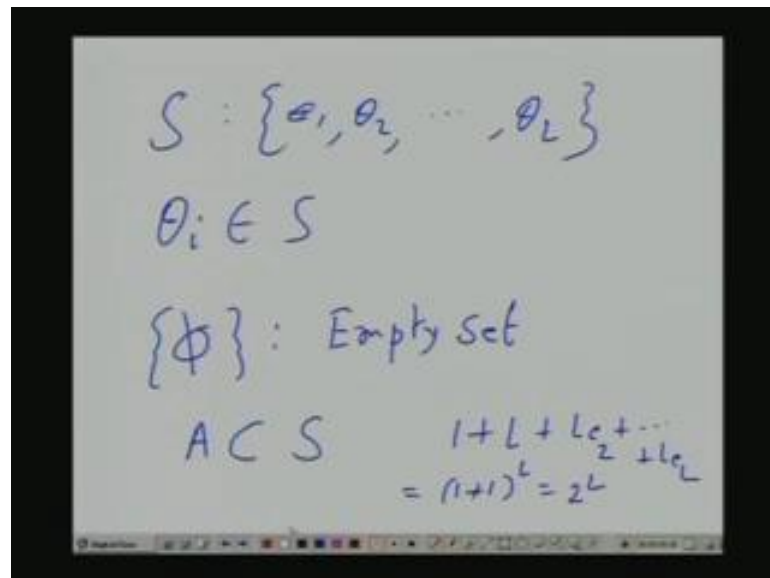 S : {θ₁, θ₂, ⋯, θ_L}
θᵢ ∈ S
{ϕ} : Empty Set
A ⊂ S
1 + L + Lc₂ + ⋯ + Lc_L
= (1+1)^L = 2^L